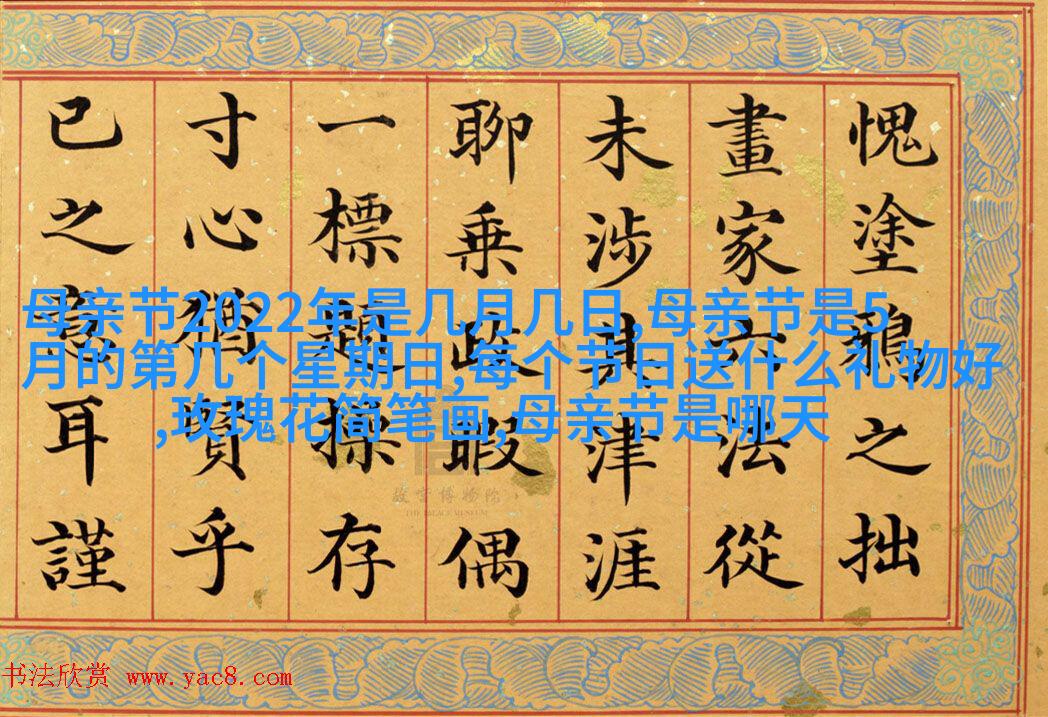 愧塗鴉之拙
畫家六法從
未涉其津涯
聊乘政暇偶
一標題操存
寸心猶賢乎
已之意耳謹
母亲节2022年是几月几日,母亲节是5
月的第几个星期日,每个节日送什么礼物好
,玫瑰花简笔画,母亲节是哪天
故宫博物院
THE PALACE MUSEUM
书法欣赏 www.yac8.com